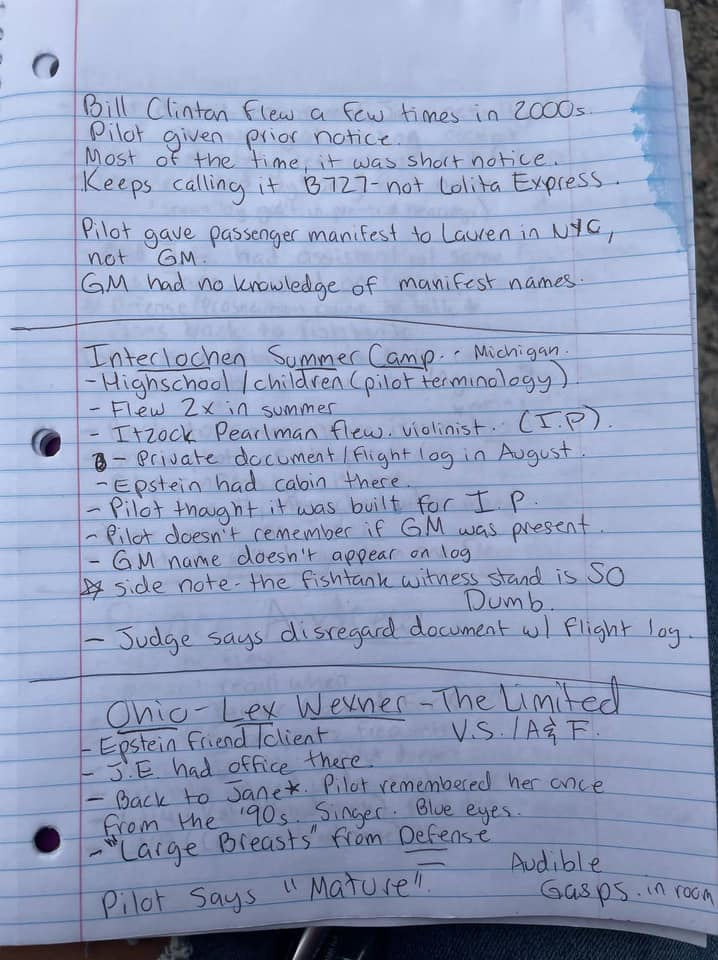 Bill Clinton flew a few times in 2000s.
Pilot given prior notice.
Most of the time, it was short notice.
Keeps calling it B727-not Lolita Express.
Pilot gave passenger manifest to Lauren in NYC,
not GM.
GM had no knowledge of manifest names.
Interlochen Summer Camp.. Michigan.
- Highschool/children (pilot terminology)
- Flew 2x in summer
- Itzock Pearlman flew. violinist.. (I.P).
- Private document/flight log in August.
- Epstein had cabin there.
- Pilot thought it was built for I.P.
- Pilot doesn't remember if GM was present.
- GM name doesn't appear on log
☆ side note- the fishtank witness stand is SO
Dumb.
- Judge says disregard document w/ flight log.
Ohio- Lex Wexner -The Limited
- Epstein friend/client V.S. /A&F.
- J.E. had office there.
- Back to Jane*. Pilot remembered her once
from the '90s. Singer. Blue eyes.
- "Large Breasts" from Defense
Audible
Pilot Says "Mature". Gasps. in room